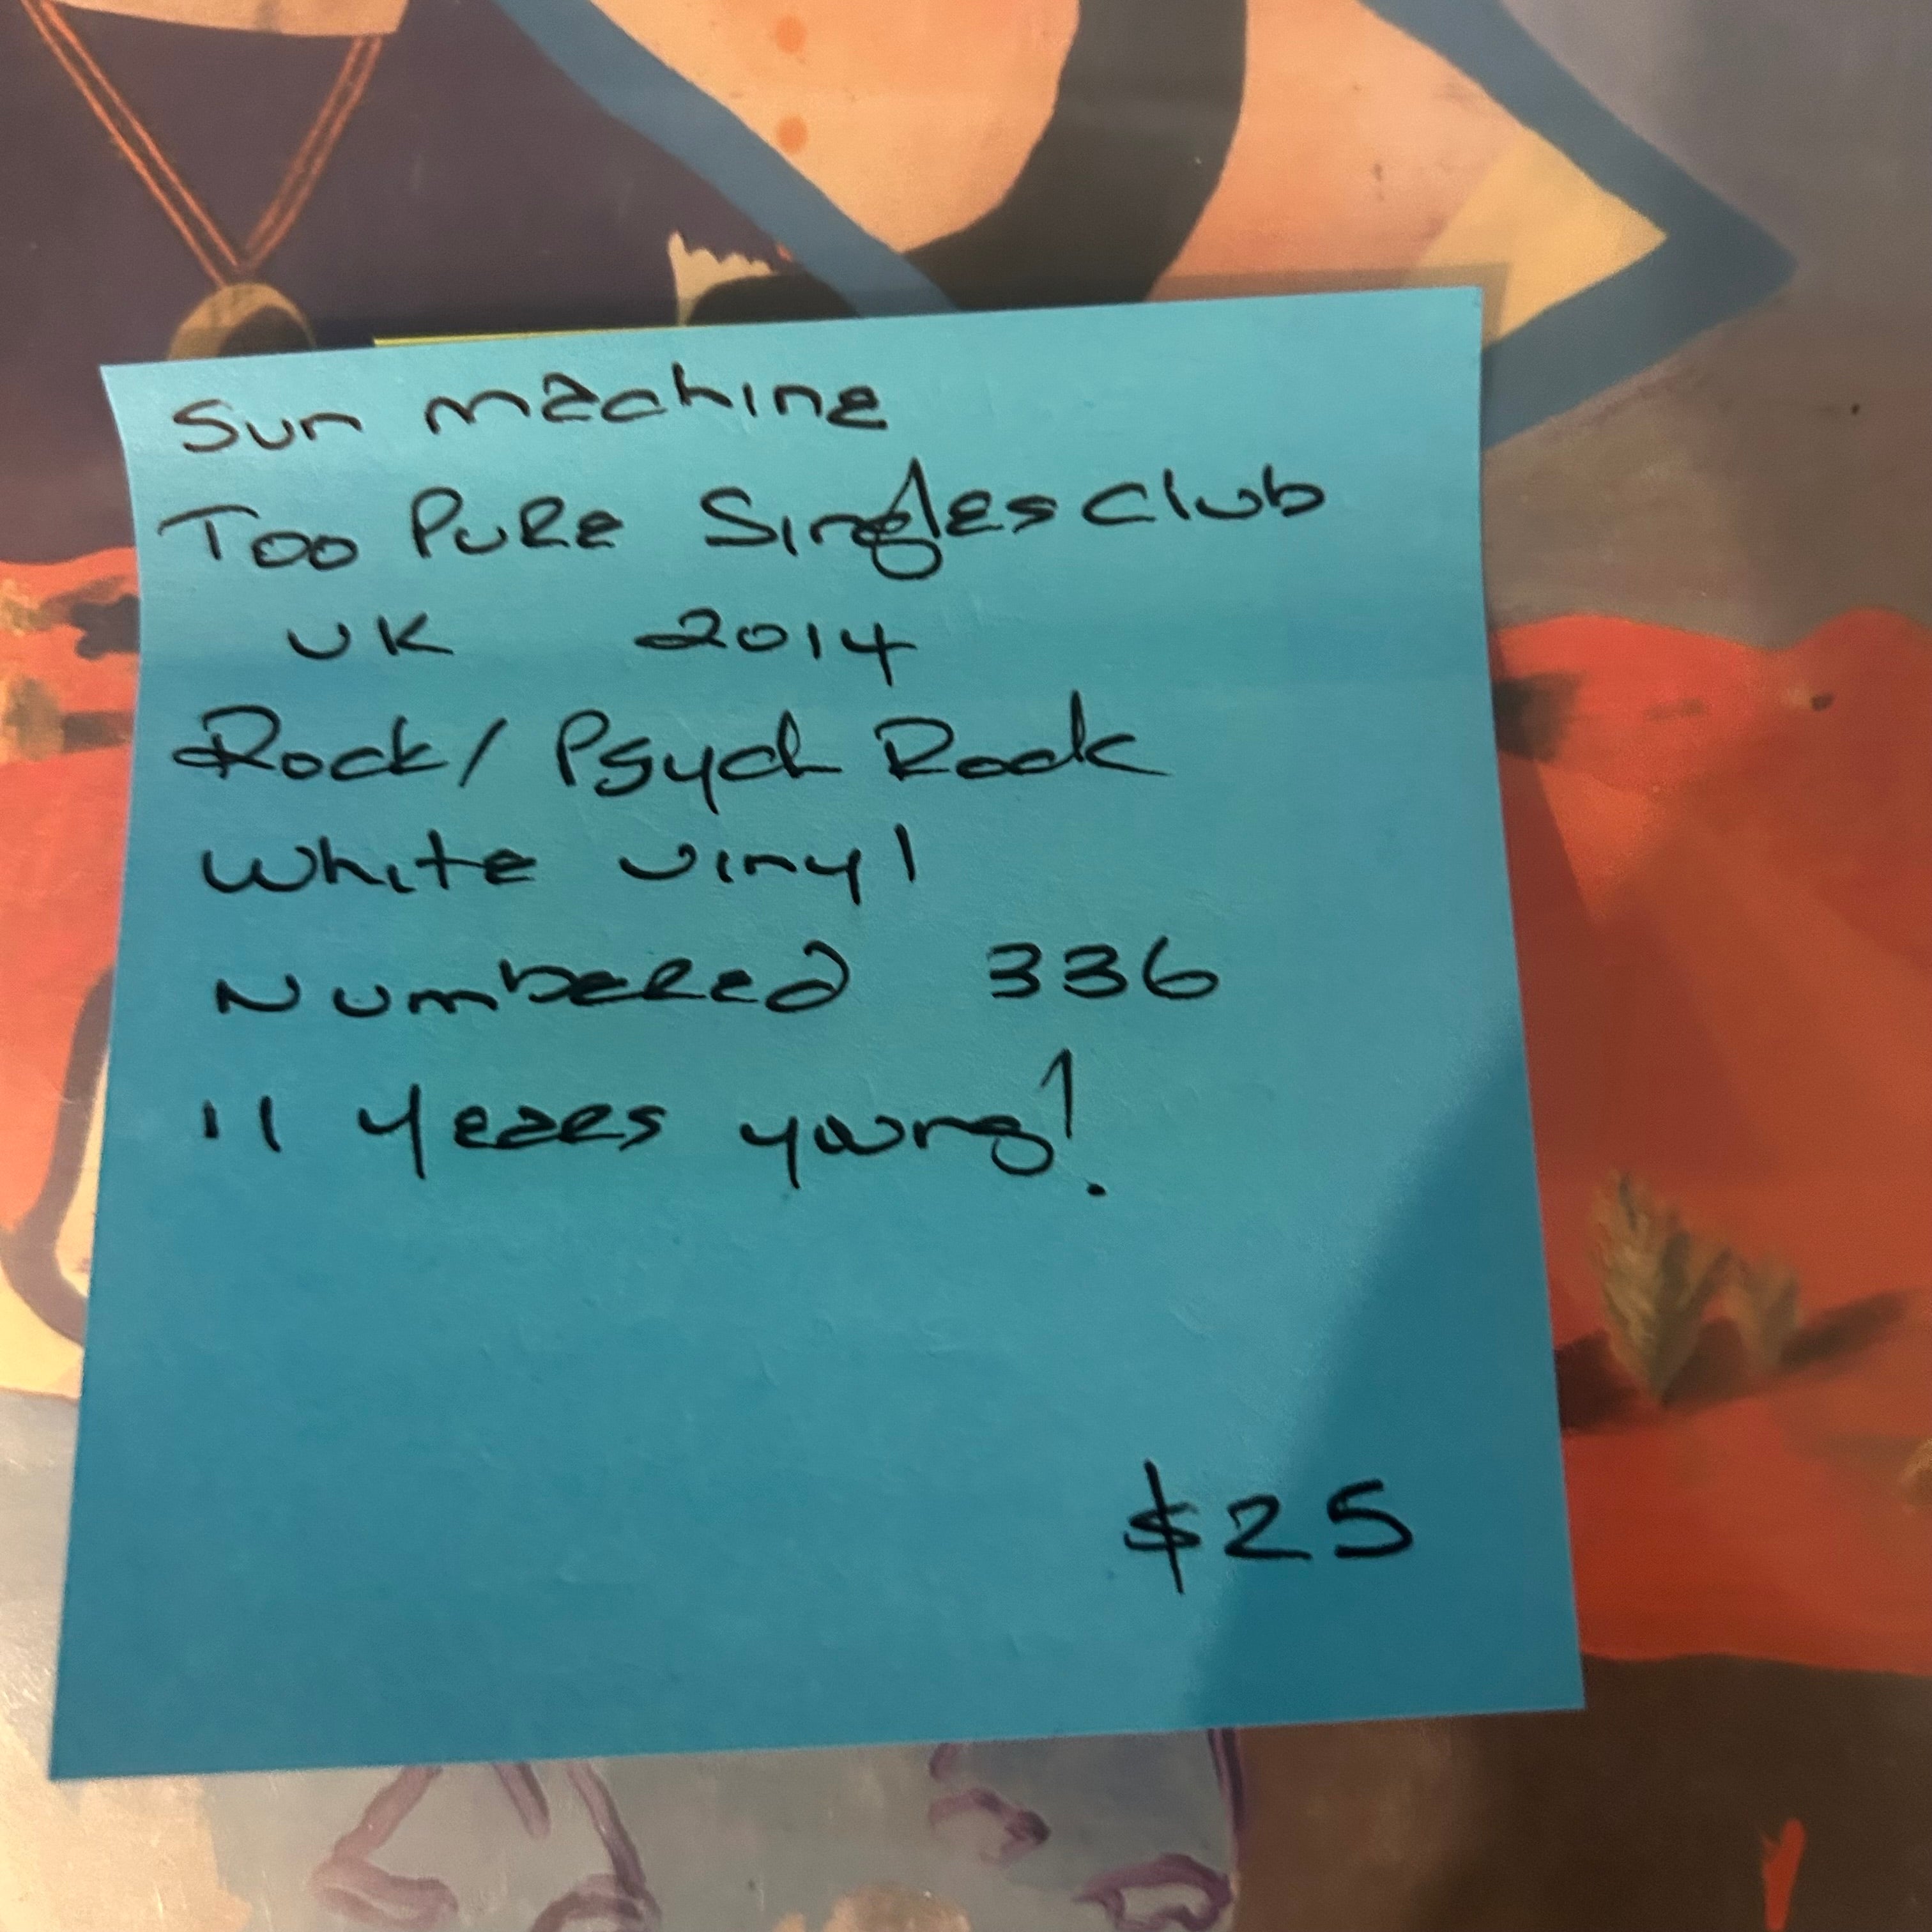 Sun machine
Too Pure Singles Club
UK 2014
Rock/ Psych Rock
White vinyl
Numbered 336
11 years young!
$25